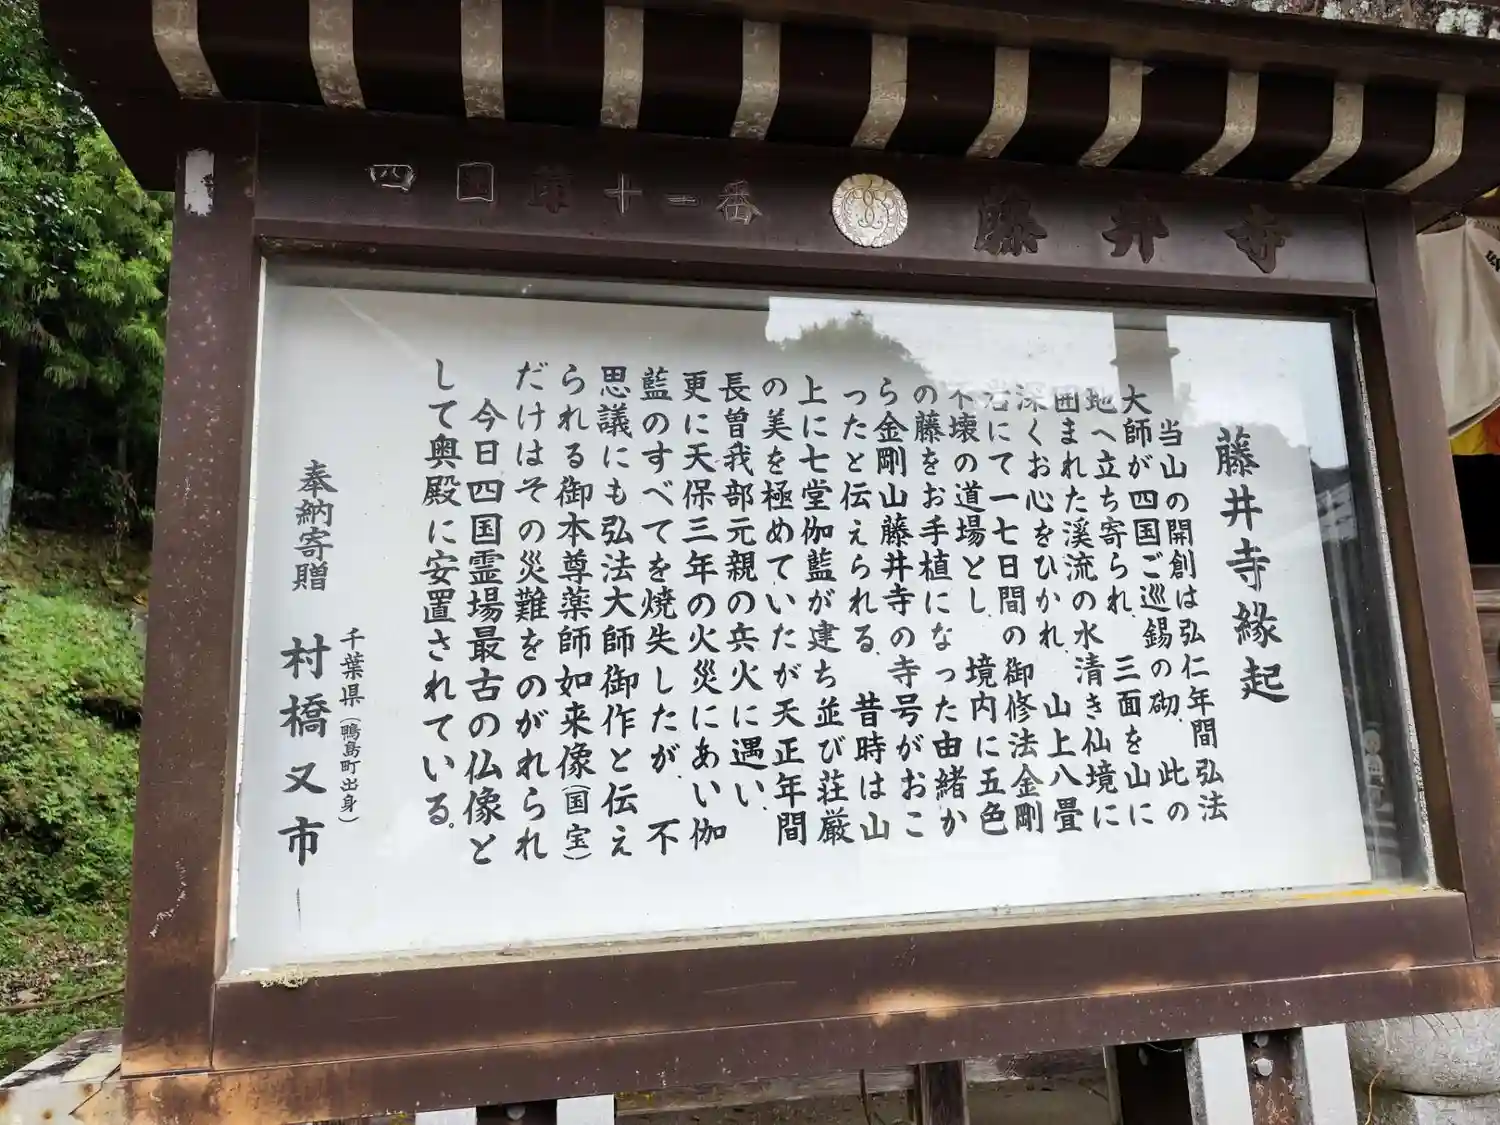 四国第十一番 藤井寺
藤井寺縁起
当山の開創は弘仁年間弘法
大師が四国ご巡錫の砌、此の
地へ立ち寄られ、三面を山に
囲まれた溪流の水清き仙境に
深くお心をひかれ、山上八畳
岩にて一七日間の御修法金剛
不壊の道場とし、境内に五色
の藤をお手植になった由緒か
ら金剛山藤井寺の寺号がおこ
ったと伝えられる。昔時は山
上に七堂伽藍が建ち並び荘厳
の美を極めていたが天正年間
長曽我部元親の兵火に遇い、
更に天保三年の火災にあい伽
藍のすべてを焼失したが、不
思議にも弘法大師御作と伝え
られる御本尊薬師如来像(国宝)
だけはその災難をのがれられ
今日四国霊場最古の仏像と
して奥殿に安置されている。
千葉県(鴨島町出身)
奉納寄贈 村橋又市